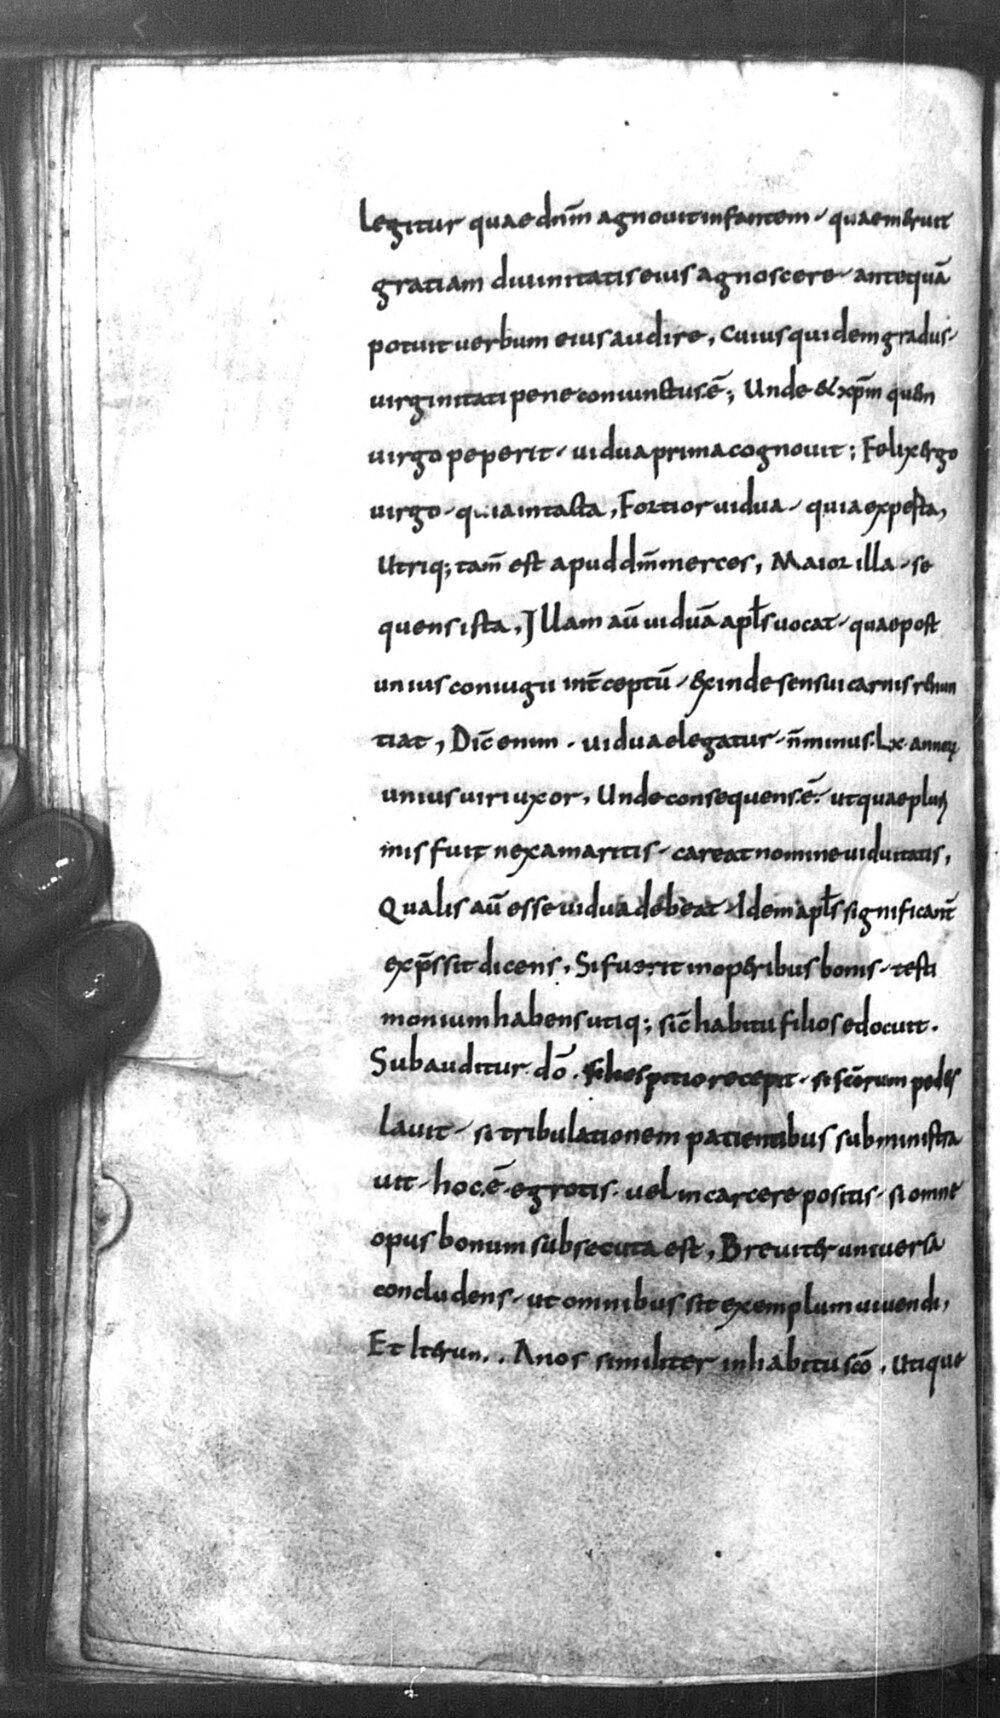 Legitur quae dn̄m agnouit infantem, quae meruit
gratiam diuinitatis eius agnoscere, antequā
potuit uerbum eius audire, Cuius quidem gradus,
uirginitati pene coniunctus ē; Unde & xp̄m quem
uirgo peperit, uidua prima cognouit; Felix ergo
uirgo, quia intacta, Fortior uidua, quia experta,
Utriq; tam̄ est apud dm̄ merces, Maior illa, se
quens ista, Illam aū uiduā apl̄s uocat, quae post
unius coniugii int̄ceptū, exinde sensui carnis renun
tiat, Dic̄ enim. uidua elegatur, n̄ minus. Lx. annorum
unius uiri uxor, Unde consequens ē. ut quae pluri
mis fuit nexa maritis, careat nomine uiduitatis,
Qualis aū esse uidua debeat, Idem apl̄s significant̄
exp̄ssit dicens, Si fuerit in operibus bonis, testi
monium habens utiq; sic̄ habitu filios edocuit.
Subauditur. dō. si hospitio recepit, si sc̄orum pedes
lauit, si tribulationem patientibus subministra
uit, hoc ē. egrotis. uel in carcere positis, si omne
opus bonum subsecuta est, Breuiter uniuersa
concludens, ut omnibus sit exemplum uiuendi,
Et Iterum.. Anos similiter in habitu scō, utique